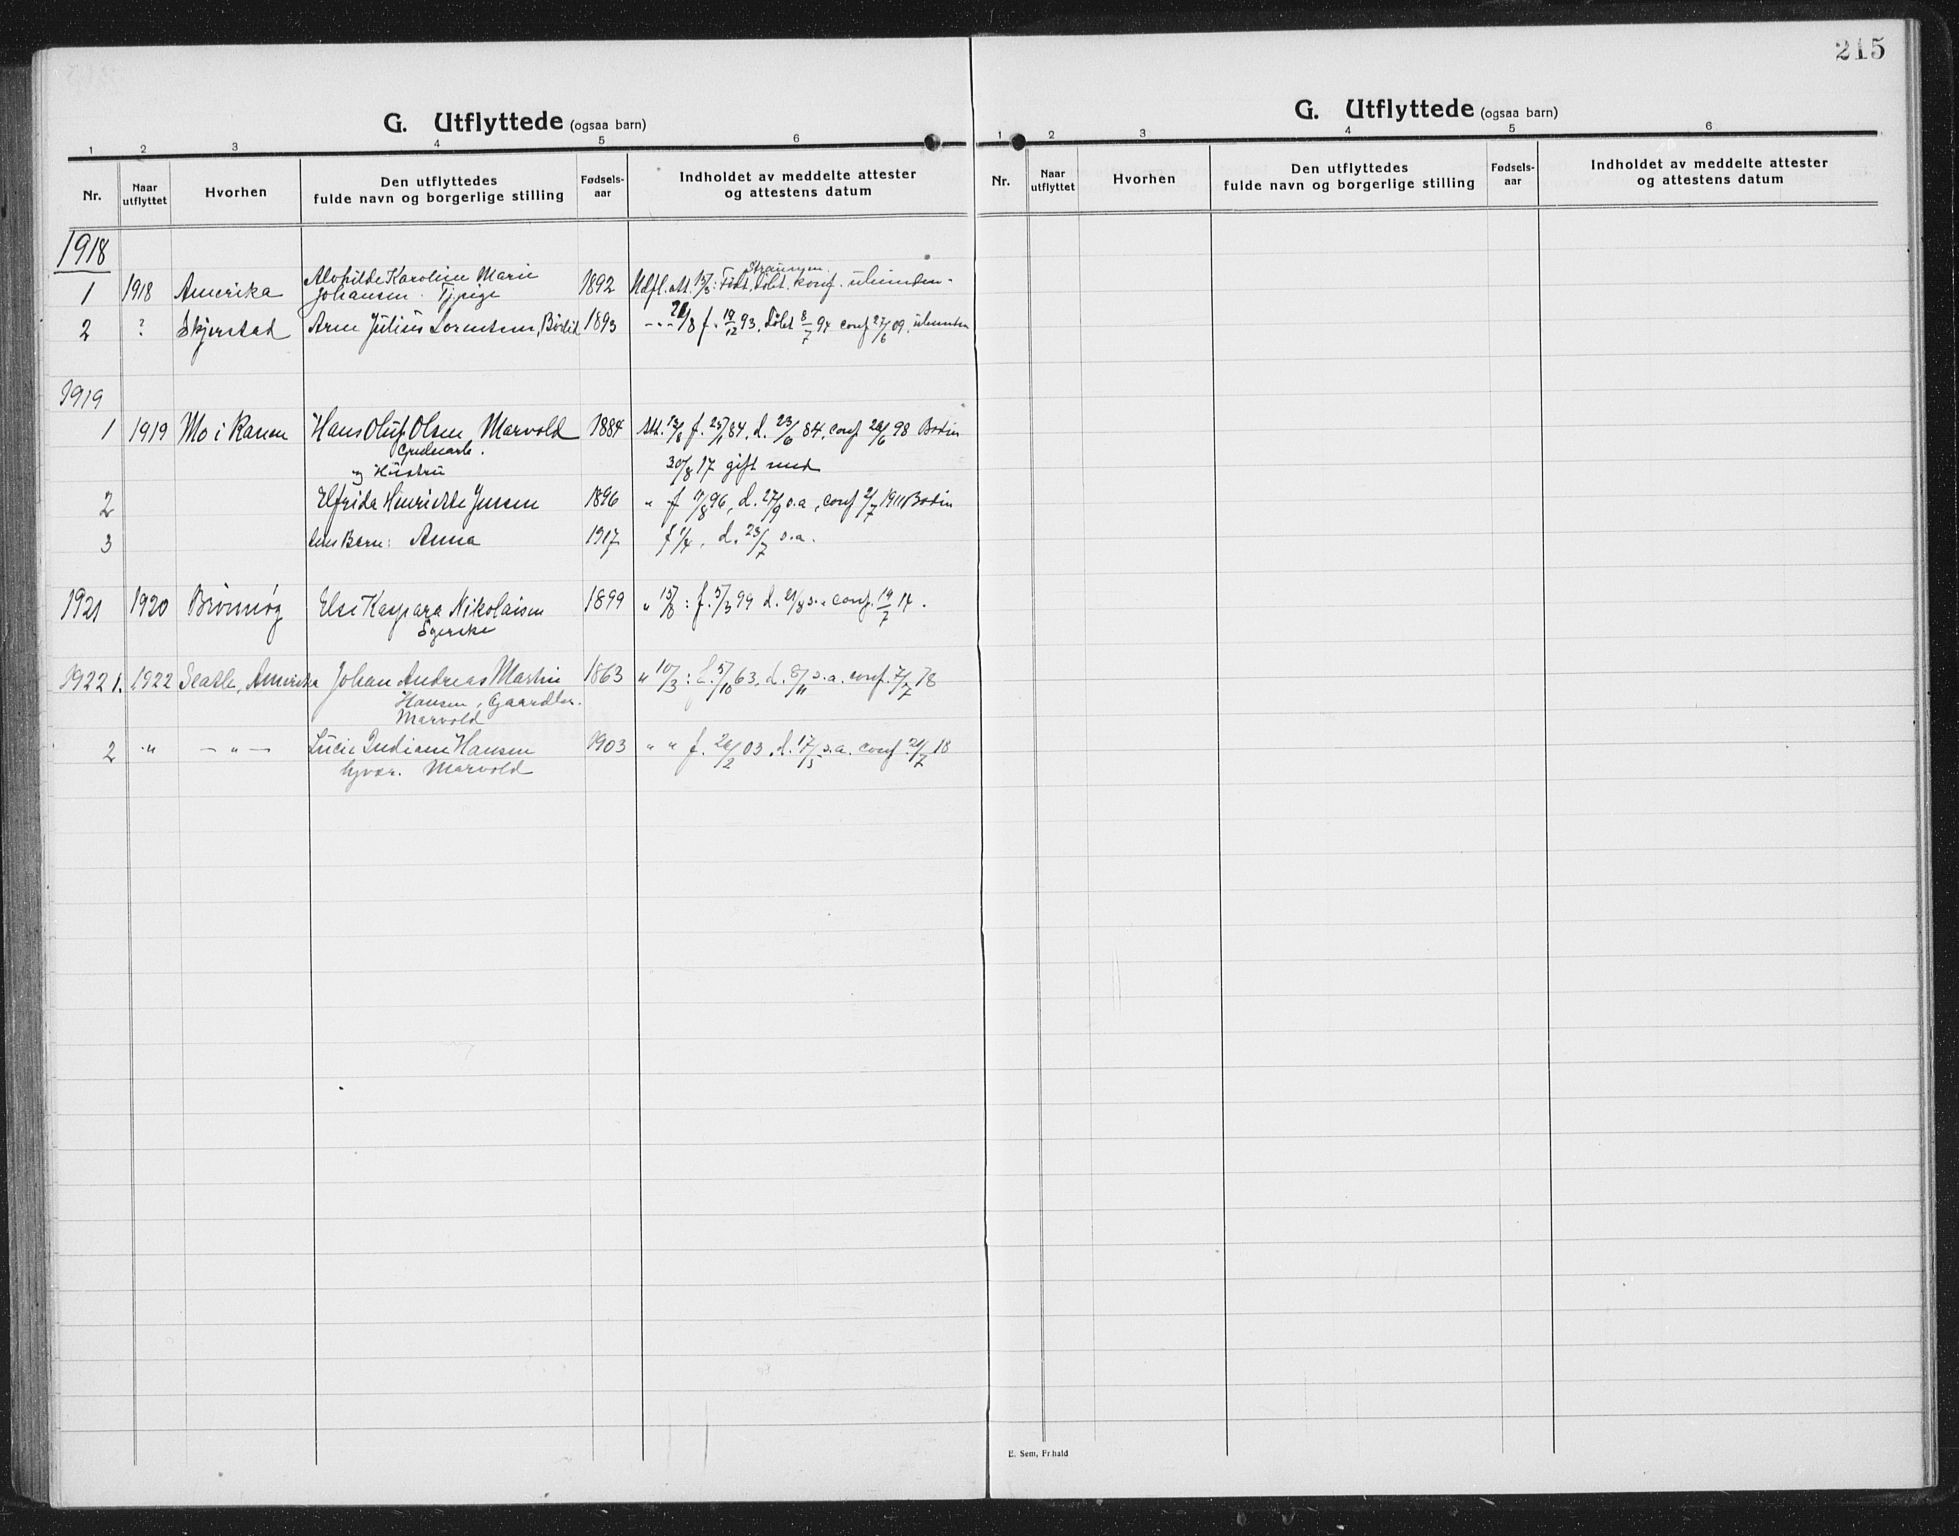 215
G. Utflyttede (ogsaa barn)
1 2 3 4 5 6
Nr. Naar utflyttet Hvorhen Den utflyttedes fulde navn og borgerlige stilling Fødsels-aar Indholdet av meddelte attester og attestens datum
1918
1 1918 Amerika Karoline Marie 1892 Udfl. att. 15/3: Født, døbt. konf.
Johansen. Tjpige
2 ? Skjerstad Arne Julius Lorentsen, 1893 f. 19/12 93. døbt 8/7 94 conf 27/6 09.
1919
1 1919 Mo i Ranen Hans Oluf Olsen Marvold 1884 Att. f. 84. d. 23/6 84. conf 26/6 98 Bodin
og Hustru 30/8 17 gift med
2 Elfrida Henriette Jensen 1896 " f 96, d. 27/9 s.a, conf 2/7 1911 Bodin
3 Barn: Anna 1917 d. 23/7 s.a.
1921 1920 Brønnøy Else Kaspara Nikolaisen 1899 " : f. 5/3 99 d. s.a. conf. 19/7 14.
1922 1. 1922 Seatle, Amerika Johan Andreas Martin 1863 " 10/3: f. 5/10 63. d. 8/11 s.a. conf. 7/7 78
Hansen, Gaardbr.
Marvold
2 " — " — Lucie Indiane Hansen 1903 " " f. 26/2 03. d. 17/5 s.a. conf. 21/7 18
Marvold
G. Utflyttede (ogsaa barn)
1 2 3 4 5 6
Nr. Naar utflyttet Hvorhen Den utflyttedes fulde navn og borgerlige stilling Fødsels-aar Indholdet av meddelte attester og attestens datum
E. Sem, Fr.hald